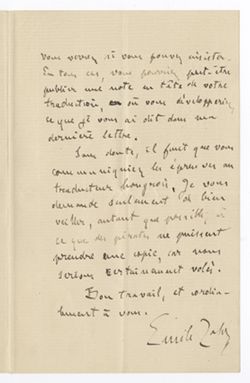 vous verrez si vous pouvez insister.
En tous cas, vous pourriez peut-être
publier une note en tête de votre
traduction, où vous développeriez
ce que je vous ai dit dans ma
dernière lettre.
Sans doute, il faut que vous
communiquiez les épreuves au
traducteur hongrois. Je vous
demande seulement de bien
veiller, autant que possible, à
ce que des pirates ne puissent
prendre une copie, car nous
serions certainement volés.
Bon travail, et cordia-
lement à vous.
Emile Zola